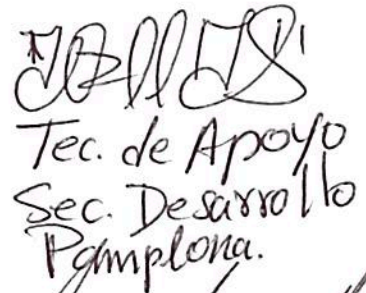 Tec. de Apoyo
Sec. Desarrollo
Pamplona.